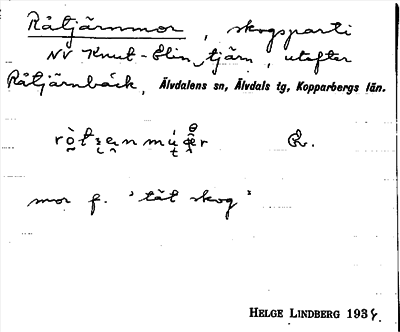 Råtjärnmor, skogsparti
NV Knut-Elin tjärn, utefter
Råtjärnbäck, Älvdalens sn, Älvdals tg, Kopparbergs län.
R.
mor f. 'tät skog'
HELGE LINDBERG 1934.